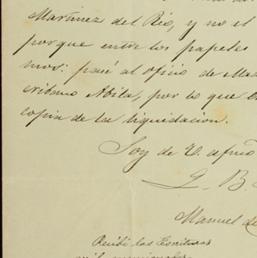 Martinez del Rio, y no el
porque entre los papeles
mos: pasé al oficio de Ma
cribano Abila, por lo que
copia de la liquidacion.
Soy de U. afmo
Q. B.
Manuel de
Recibi las Escrituras